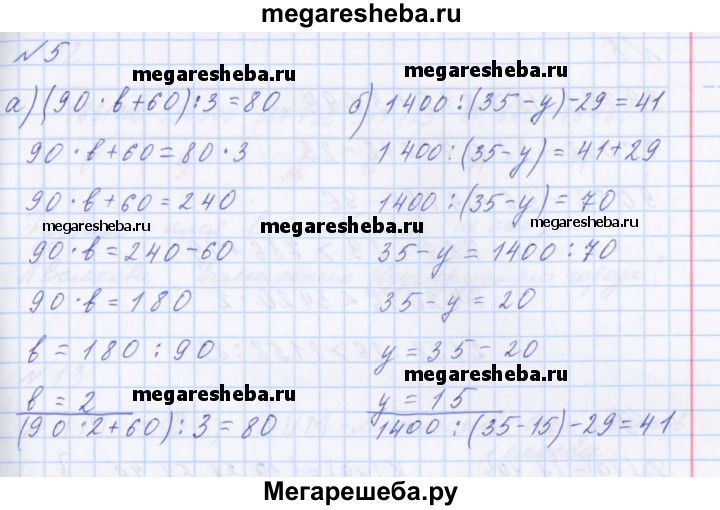 megaresheba.ru
№5
megaresheba.ru
megaresheba.ru
а) (90 · в + 60) : 3 = 80
90 · в + 60 = 80 · 3
90 · в + 60 = 240
megaresheba.ru
90 · в = 240 - 60
90 · в = 180
в = 180 : 90
в = 2
(90 · 2 + 60) : 3 = 80
б) 1400 : (35 - у) - 29 = 41
1400 : (35 - у) = 41 + 29
1400 : (35 - у) = 70
megaresheba.ru
megaresheba.ru
35 - у = 1400 : 70
35 - у = 20
у = 35 - 20
у = 15
1400 : (35 - 15) - 29 = 41
megaresheba.ru
megaresheba.ru
Мегарешеба.ру